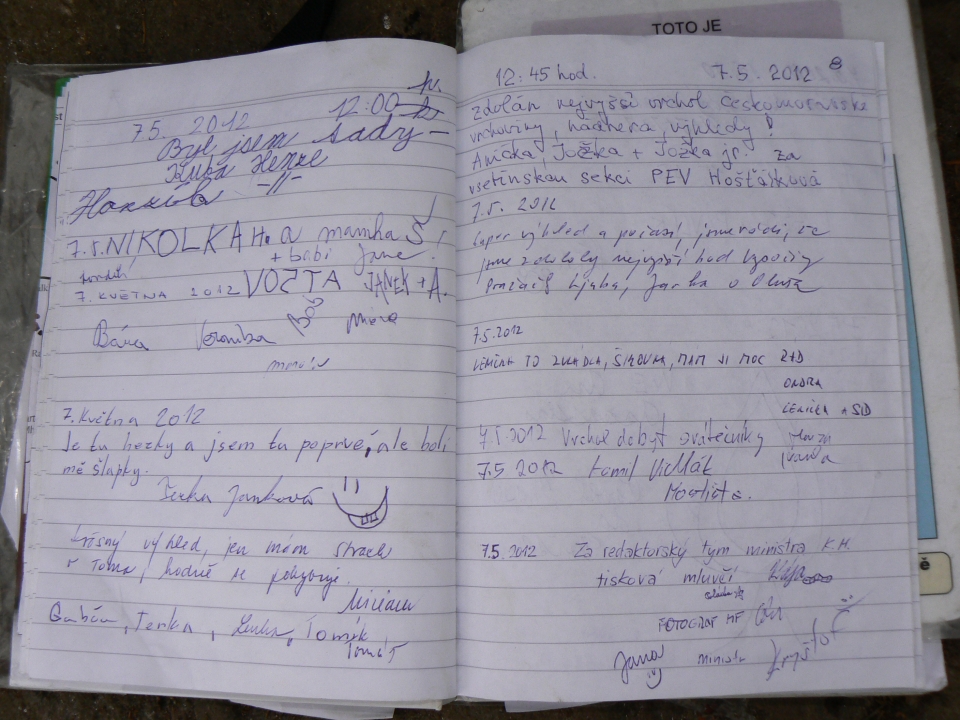 TOTO JE
7.5. 2012 12:00 h.
Byl jsem tady -
Kuba Henzl
-||-
7.5. NIKOLKA H. a mamka Š!
+ babi Jane
pondělí
7. KVĚTNA 2012 VOJTA JANEK + A.
Bára Veronika
7. Května 2012
Je tu hezky a jsem tu poprvé, ale bolí
mě šlapky.
Terka Janková
Krásný výhled, jen mám strach
hodně se pohybuje.
Miriam
Terka, Lenka, Tomík
Tomáš
12:45 hod. 7.5.2012 8
Zdolán nejvyšší vrchol Českomoravské
vrchoviny, nádhera, výhledy!
Anička, Jožka + Jožka jr. za
vsetínskou sekci PEV Hošťálková
7.5. 2012
Super výhled a počasí, jsme rádi, že
jsme zdolaly nejvyšší bod Vysočiny
7.5.2012
LENIČKA TO ZVLÁDLA, ŠIKOVNA, MÁM JI MOC RÁD
ONDRA
LENIČKA A SID
7.5.2012 Vrchol dobyt
7.5 2012 Kamil
7.5.2012 Za redaktorský tým ministra K.H.
tisková mluvčí
FOTOGRAF MF
Jana ministr Kryštof